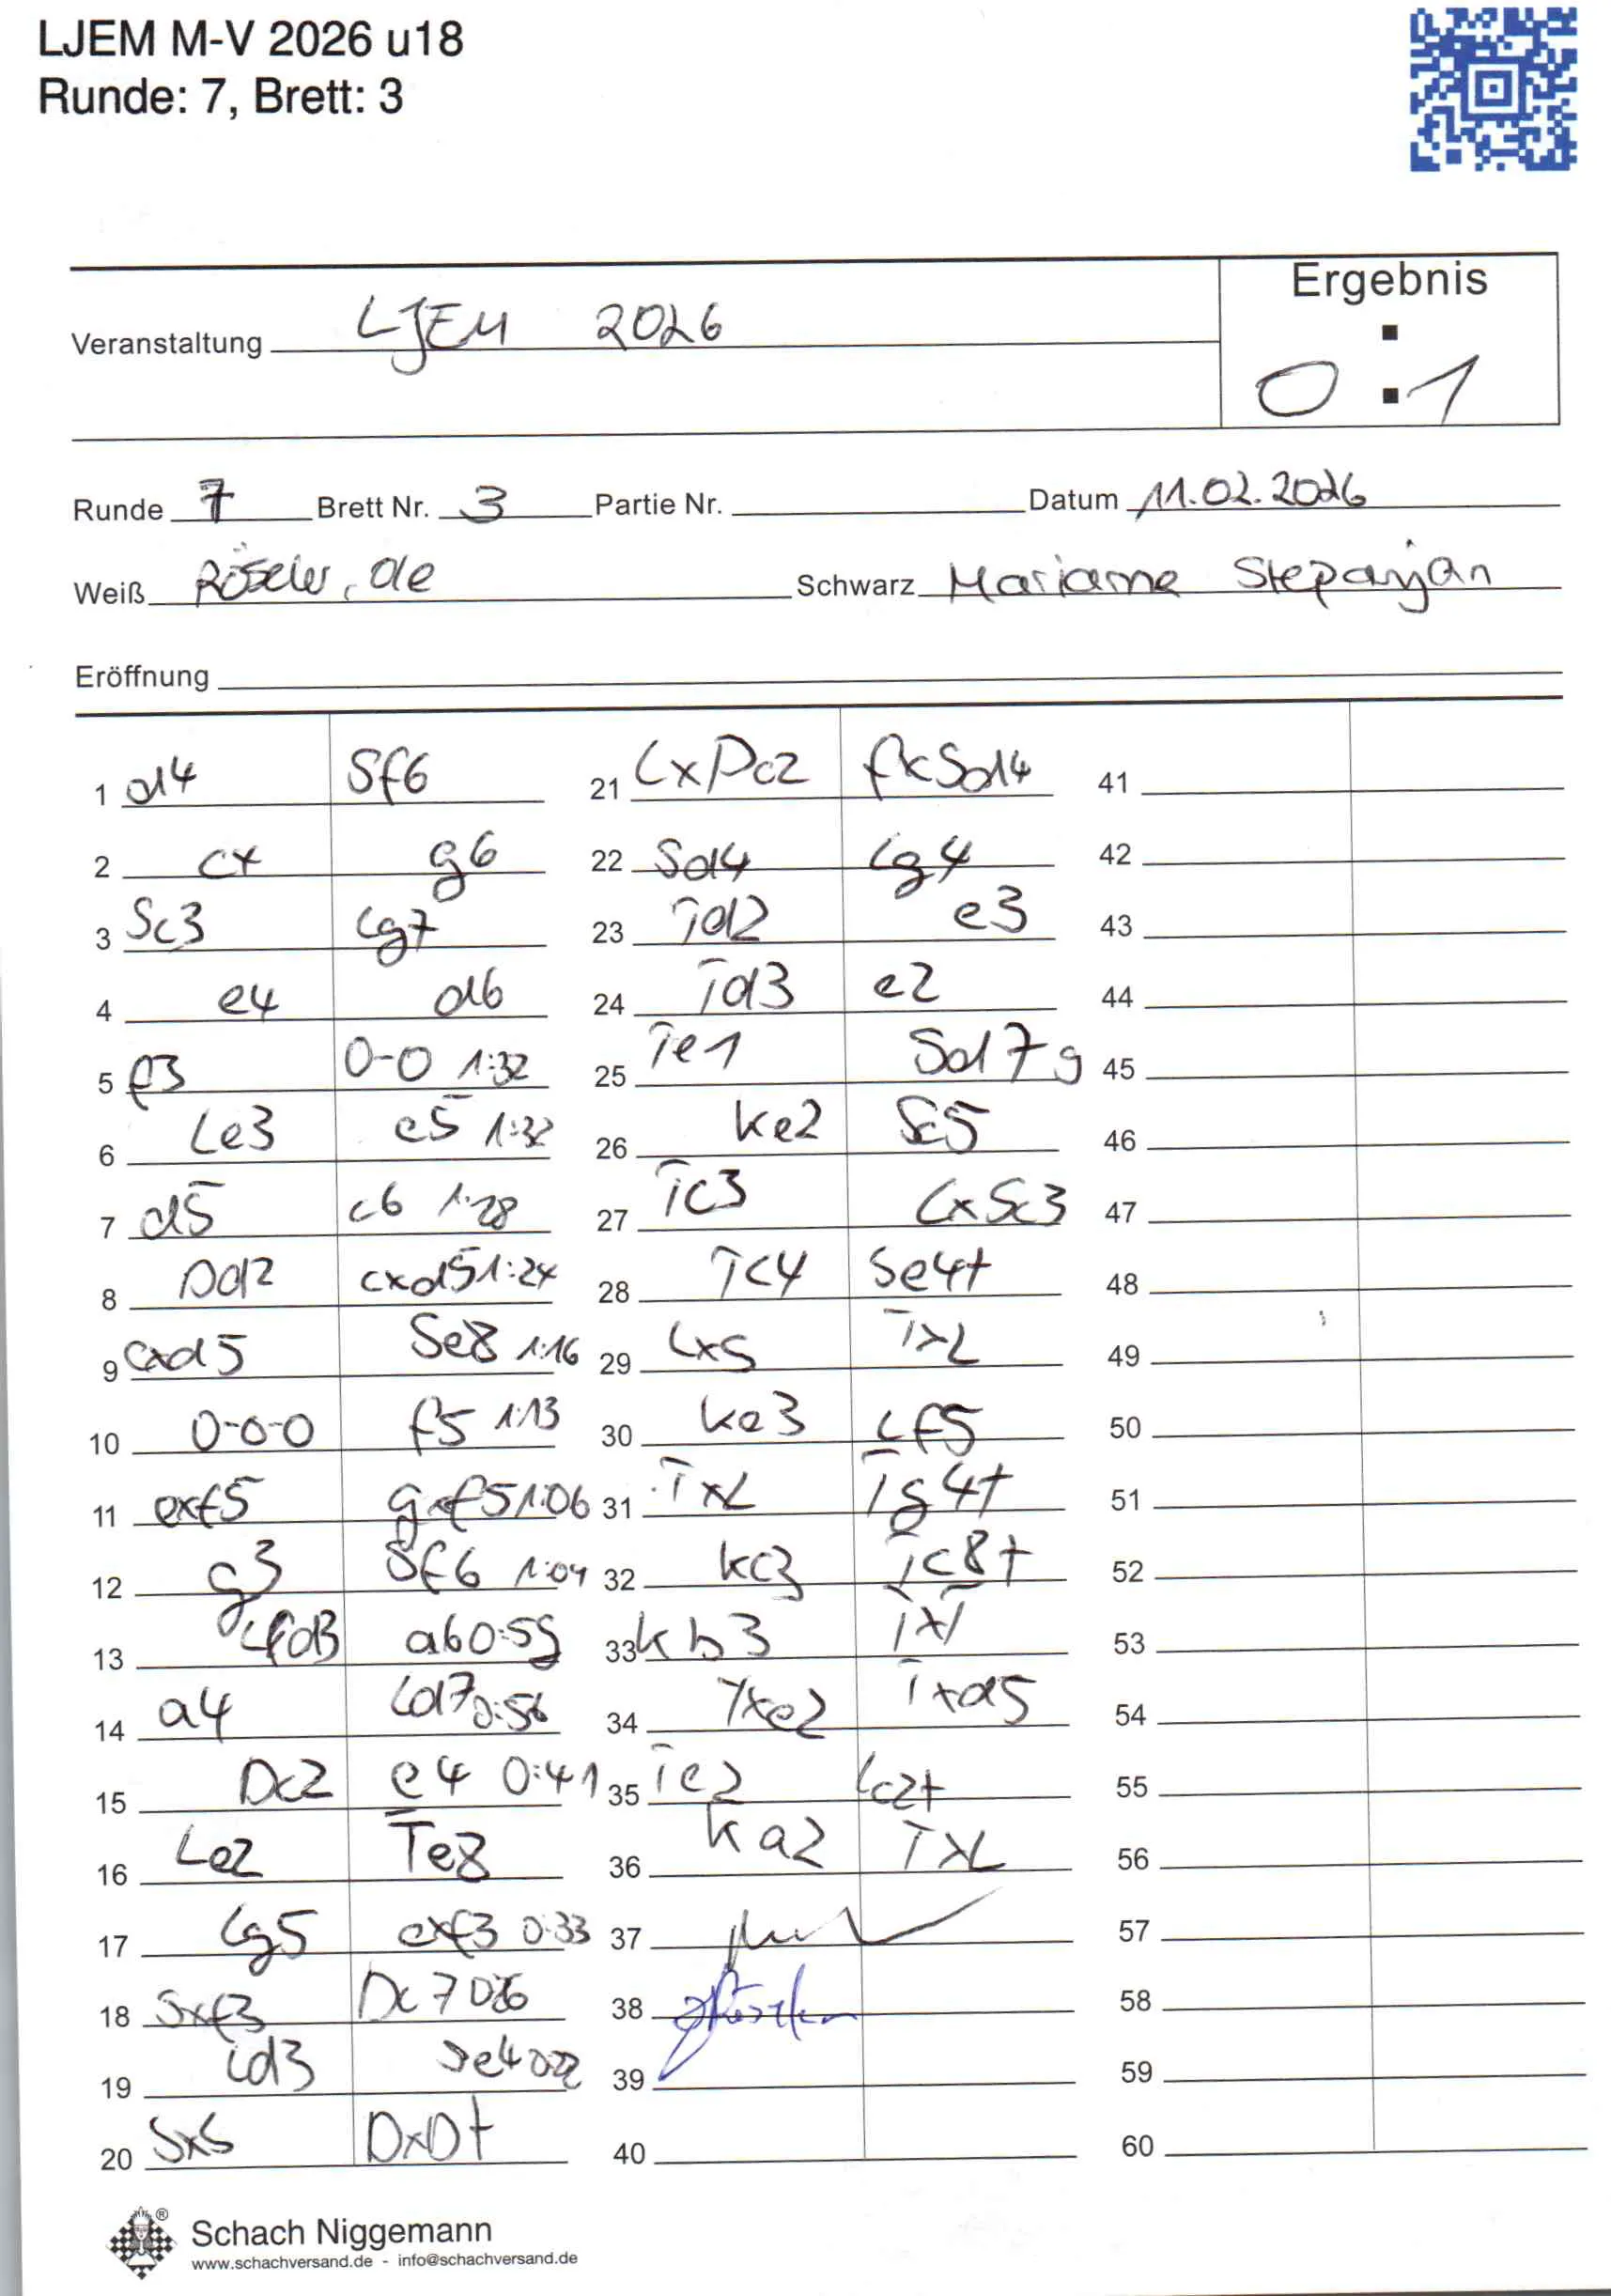 LJEM M-V 2026 u18
Runde: 7, Brett: 3
Ergebnis
:
Veranstaltung LJEM 2026
0 : 1
Runde 7 Brett Nr. 3 Partie Nr. Datum 11.02.2026
Weiß Röseler, Ole Schwarz Marianna Stepanjan
Eröffnung
1 d4 Sf6 21 LxDc2 fxSd4 41
2 c4 g6 22 Sd4 Lg4 42
3 Sc3 Lg7 23 Td2 e3 43
4 e4 d6 24 Td3 e2 44
5 f3 0-0 1:32 25 Te1 Sd7 g 45
6 Le3 e5 1:32 26 Ke2 Sc5 46
7 d5 c6 1:28 27 Tc3 LxSc3 47
8 Dd2 cxd5 1:24 28 Tc4 Se4+ 48
9 cxd5 Se8 1:16 29 LxS TxL 49
10 0-0-0 f5 1:13 30 Ke3 Lf5 50
11 exf5 gxf5 1:06 31 TxL Tg4+ 51
12 g3 Sf6 1:04 32 Kc3 Tc8+ 52
13 Ld3 a6 0:59 33 Kb3 TxT 53
14 a4 Ld7 0:56 34 Txe2 Txd5 54
15 Dc2 e4 0:41 35 Te2 Lc2+ 55
16 Le2 Te8 36 Ka2 TxL 56
17 Lg5 exf3 0:33 37 57
18 Sxf3 Dc7 0:26 38 58
19 Ld3 Se4 0:22 39 59
20 SxS DxD+ 40 60
Schach Niggemann
www.schachversand.de - info@schachversand.de